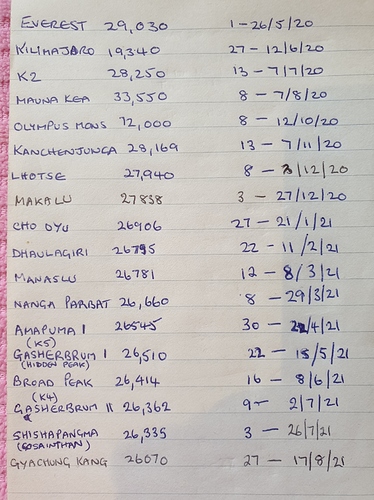 EVEREST 29,030 1-26/5/20
KILIMAJARO 19,340 27 - 12/6/20
K2 28,250 13 - 7/7/20
MAUNA KEA 33,550 8 - 7/8/20
OLYMPUS MONS 72,000 8 - 12/10/20
KANCHENJUNGA 28,169 13 - 7/11/20
LHOTSE 27,940 8 - 3/12/20
MAKALU 27838 3 - 27/12/20
CHO OYU 26906 27 - 21/1/21
DHAULAGIRI 26795 22 - 11/2/21
MANASLU 26781 12 - 8/3/21
NANGA PARBAT 26,660 8 - 29/3/21
AMAPURNA I 26545 30 - 4/21
(K5)
GASHERBRUM I 26,510 22 - 15/5/21
(HIDDEN PEAK)
BROAD PEAK 26,414 16 - 8/6/21
(K4)
GASHERBRUM II 26,362 9 - 2/7/21
SHISHAPANGMA 26,335 3 - 26/7/21
(GOSAINTHAN)
GYACHUNG KANG 26070 27 - 17/8/21